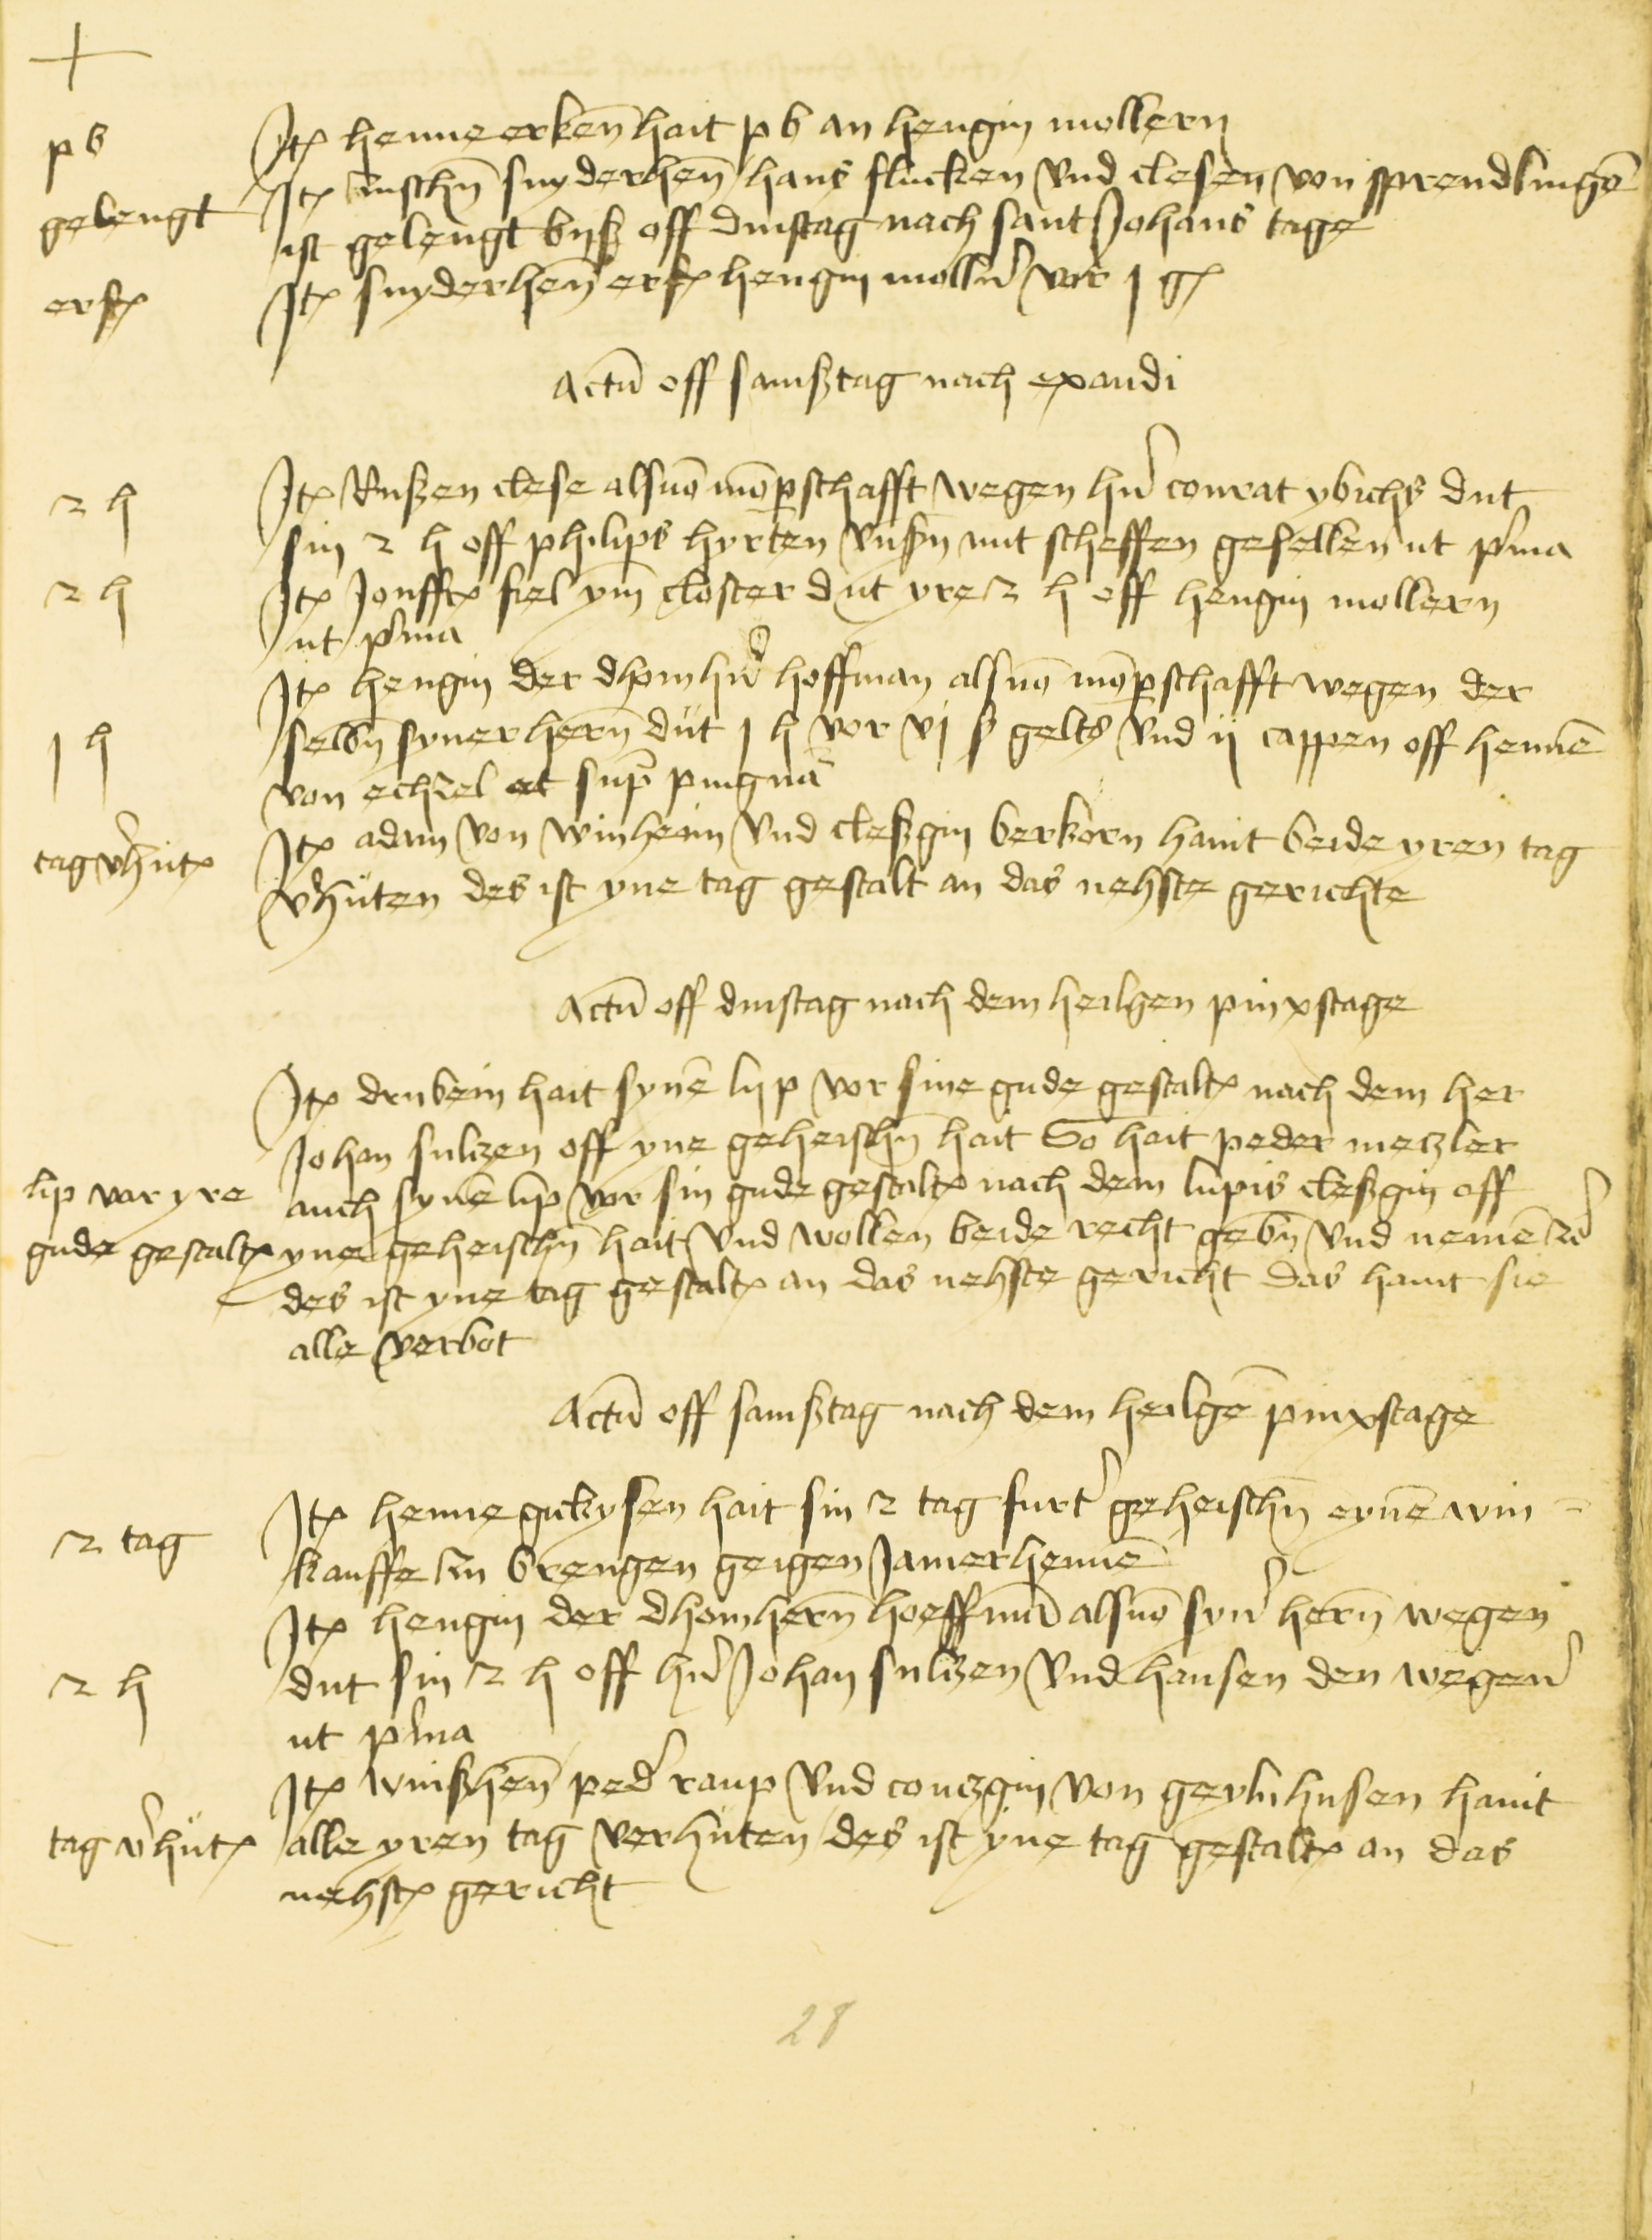 p b
Itꝫ henne erkeñ hait p b an hengin mollern
gelengt
Itꝫ zuschñ snyderheñ hans flucken vnd clesen von sprendlingē
ist gelengt byß off dinstag nach sant Johans tage
erfꝫ
Itꝫ snyderheñ erfꝫ hengin moll'n vor j gꝫ
Actū off samßtag nach exaudi
2 h
Itꝫ Rußen clese als vō mōp̱schafft wegen h'n conrat ybichs dut
sin 2 h off philips hyrten vnßn mit scheffen gesellen ut p'ma
2 h
Itꝫ Jonffꝫ fiel ym̄ closter dut yre 2 h off hengin mollern
ut p'ma
Itꝫ hengin der dhomh'n hoffman als vō mōp̱schafft wegen der
j h
selbñ syner herñ dut j h vor vj ß gelts vnd ij cappen off hennē
von echzel et sup̱ pingnā
tag v'hutꝫ
Itꝫ adam von winheim vnd cleßgin berkorn hant beide yren tag
v'huten des ist yne tag gestalt an das nehste gerichte
Actū off dinstag nach dem heilgen pinxstage
Itꝫ drubein hait synē lyp vor sine gude gestaltꝫ nach dem her
Johan sultzen off yne geheischñ hait So hait peder metzler
lip vor yre
auch synē lip vor sin gude gestaltꝫ nach dem lupis cleßgin off
gude gestaltꝫ
yne geheischñ hait vnd wollen beide recht gebñ vnd nemē
des ist yne tag gestaltꝫ an das nehste gericht das hant sie
alle verbot
Actū off samßtag nach dem heilgē pinxstage
2 tag
Itꝫ henne gickysen hait sin 2 tag furt' geheischñ eynē win=
kauffe zu brengen geigen Jamerhennē
Itꝫ hengin der dhomherñ hoeffmā als vō syn' herñ wegen
2 h
dut sin 2 h off h'n Johan sultzen vnd hansen den wegen'
ut p'ma
Itꝫ winßheñ ped' raup vnd contzgin von geylnhusen hant
tag v'hutꝫ
alle yren tag verhuten des ist yne tag gestaltꝫ an das
nehstꝫ gericht
28